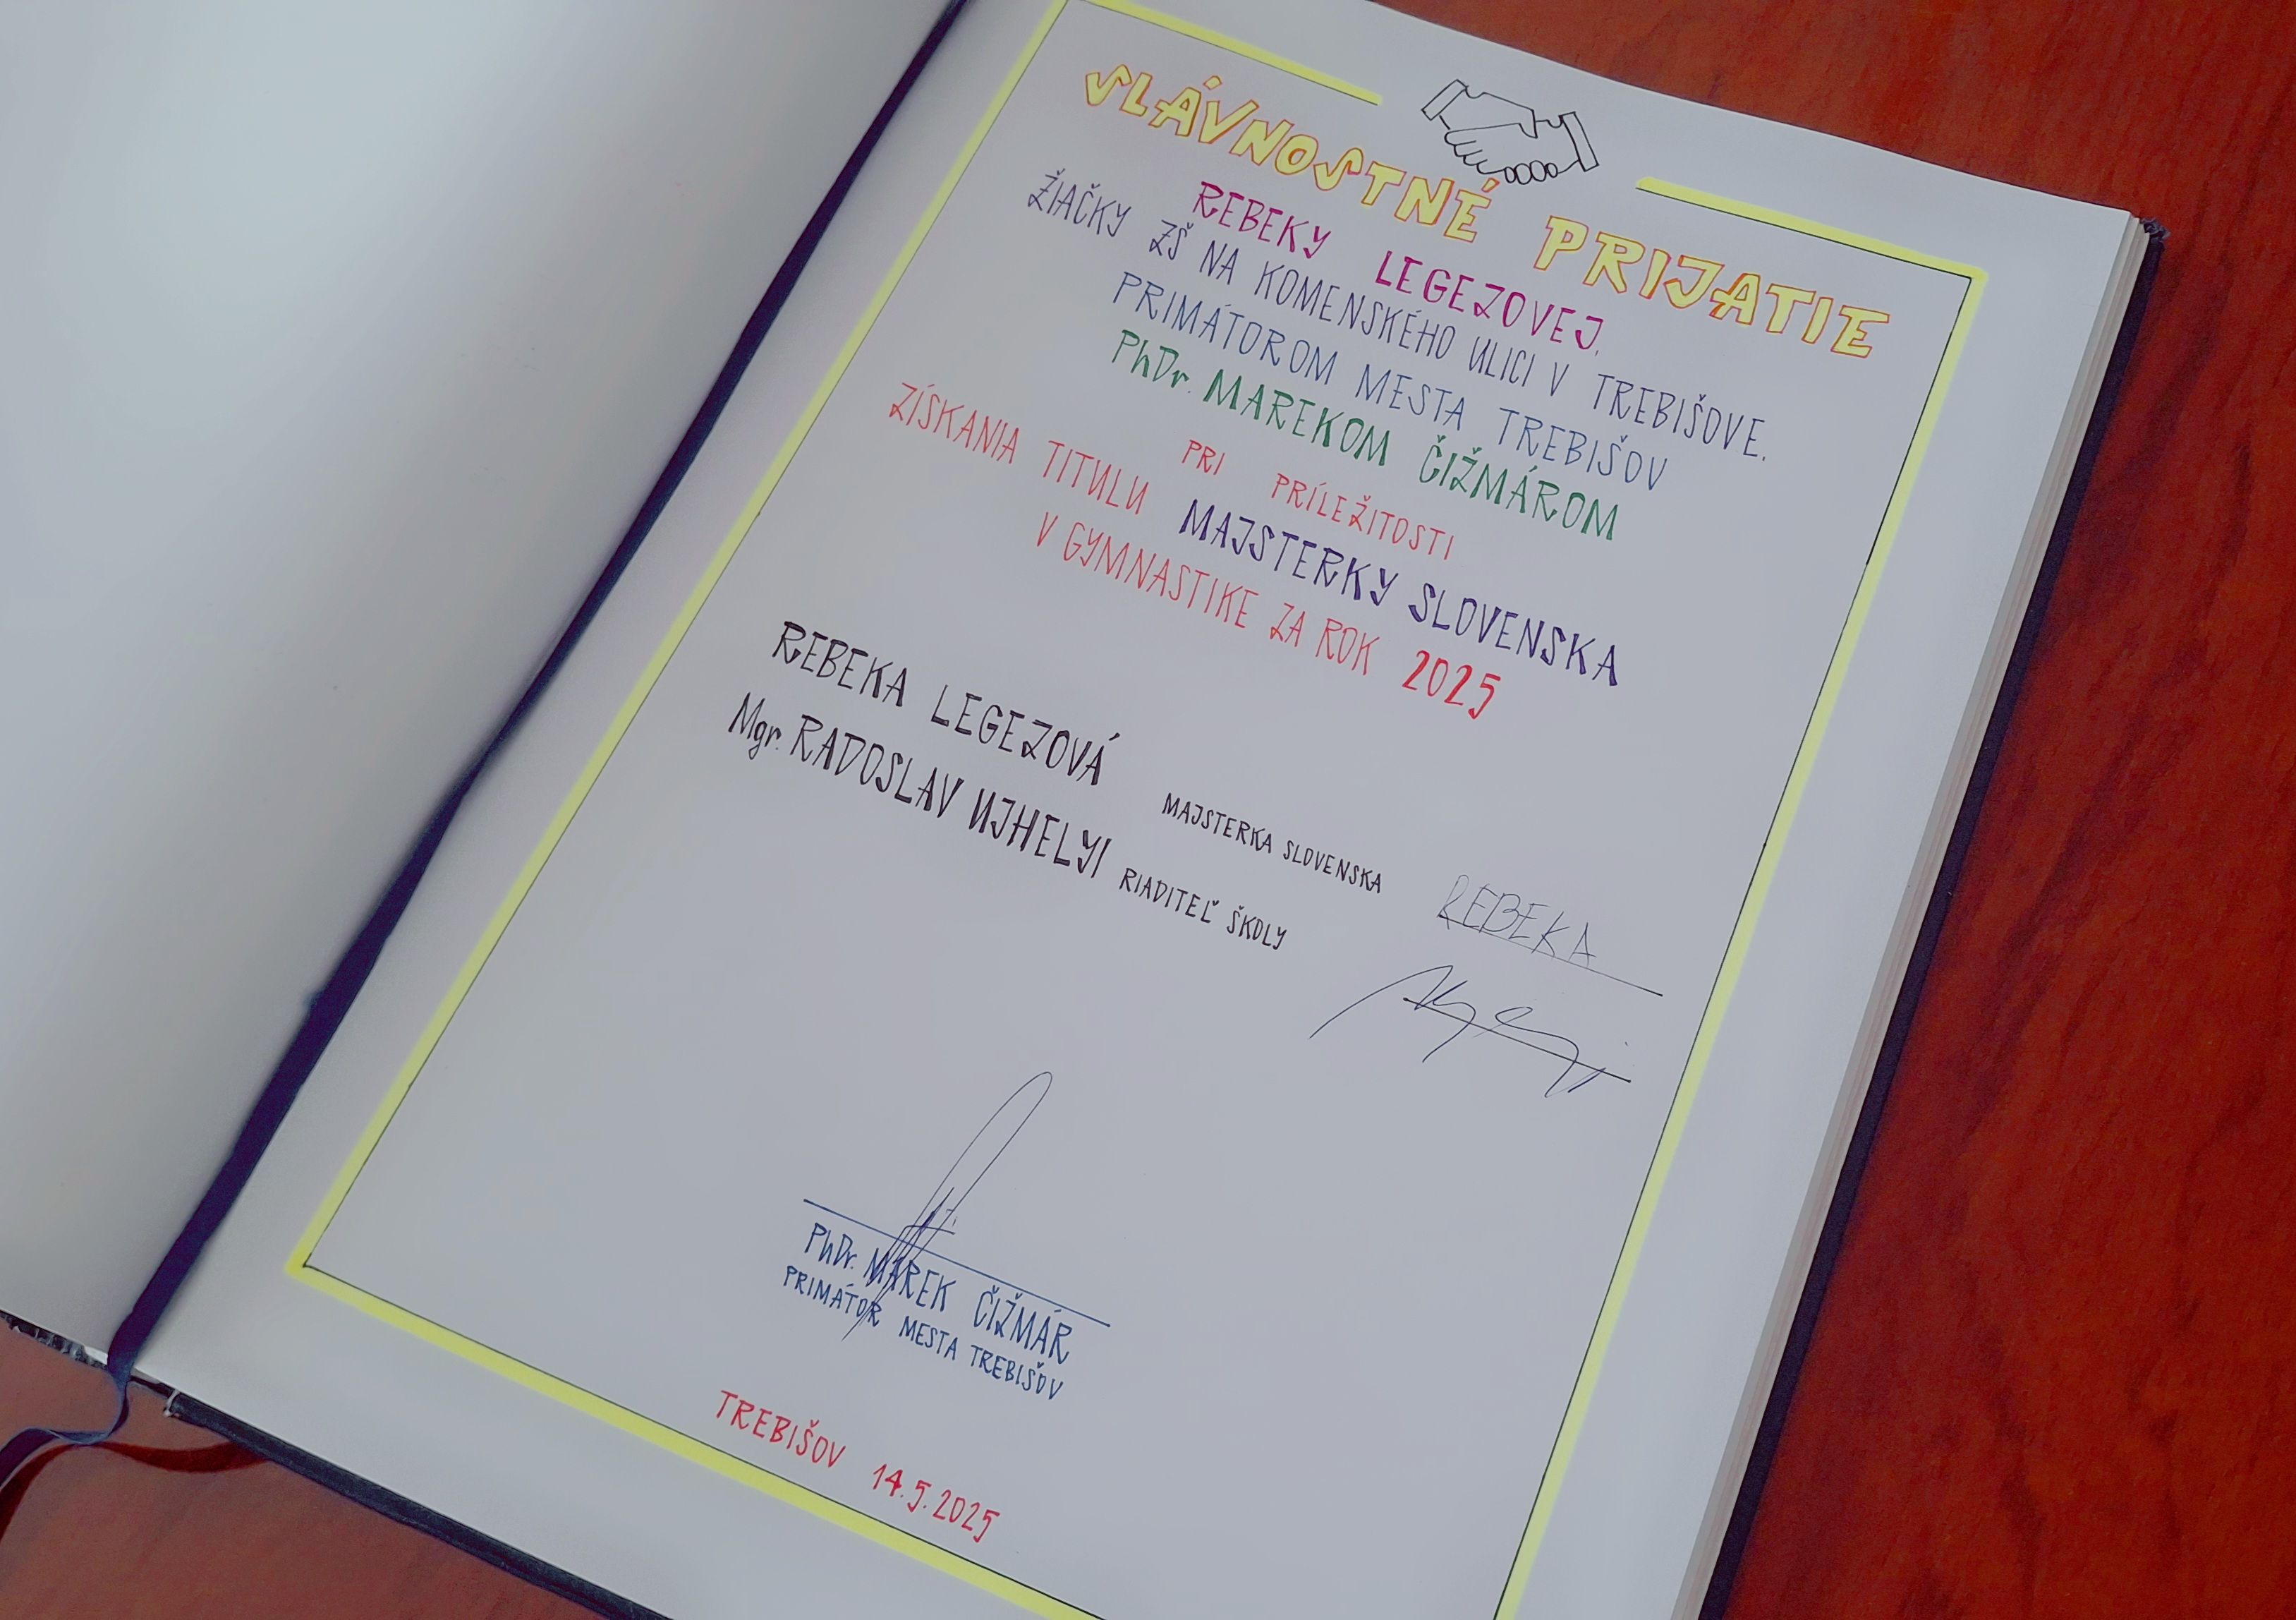 SLÁVNOSTNÉ PRIJATIE
REBEKY LEGEZOVEJ,
ŽIAČKY ZŠ NA KOMENSKÉHO ULICI V TREBIŠOVE,
PRIMÁTOROM MESTA TREBIŠOV
PhDr. MAREKOM ČIŽMÁROM
PRI PRÍLEŽITOSTI
ZÍSKANIA TITULU MAJSTERKY SLOVENSKA
V GYMNASTIKE ZA ROK 2025
REBEKA LEGEZOVÁ MAJSTERKA SLOVENSKA REBEKA
Mgr. RADOSLAV UJHELYI RIADITEĽ ŠKOLY
PhDr. MAREK ČIŽMÁR
PRIMÁTOR MESTA TREBIŠOV
TREBIŠOV 14.5.2025